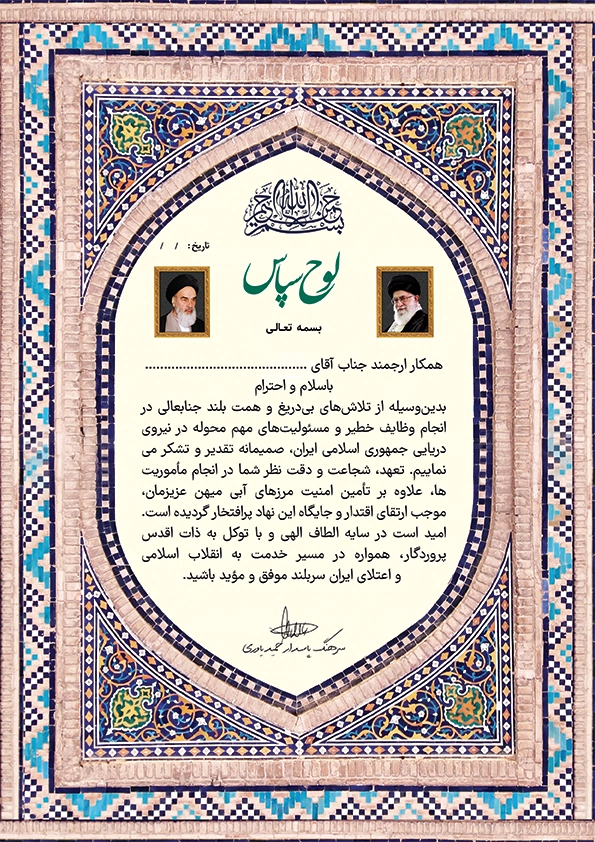 بسم الله الرحمن الرحیم
تاریخ: / /
لوح سپاس
بسمه تعالی
همکار ارجمند جناب آقای ...........................................
باسلام و احترام
بدین‌وسیله از تلاش‌های بی‌دریغ و همت بلند جنابعالی در
انجام وظایف خطیر و مسئولیت‌های مهم محوله در نیروی
دریایی جمهوری اسلامی ایران، صمیمانه تقدیر و تشکر می
نماییم. تعهد، شجاعت و دقت نظر شما در انجام مأموریت
ها، علاوه بر تأمین امنیت مرزهای آبی میهن عزیزمان،
موجب ارتقای اقتدار و جایگاه این نهاد پرافتخار گردیده است.
امید است در سایه الطاف الهی و با توکل به ذات اقدس
پروردگار، همواره در مسیر خدمت به انقلاب اسلامی
و اعتلای ایران سربلند موفق و مؤید باشید.
سرهنگ پاسدار حمید یاوری